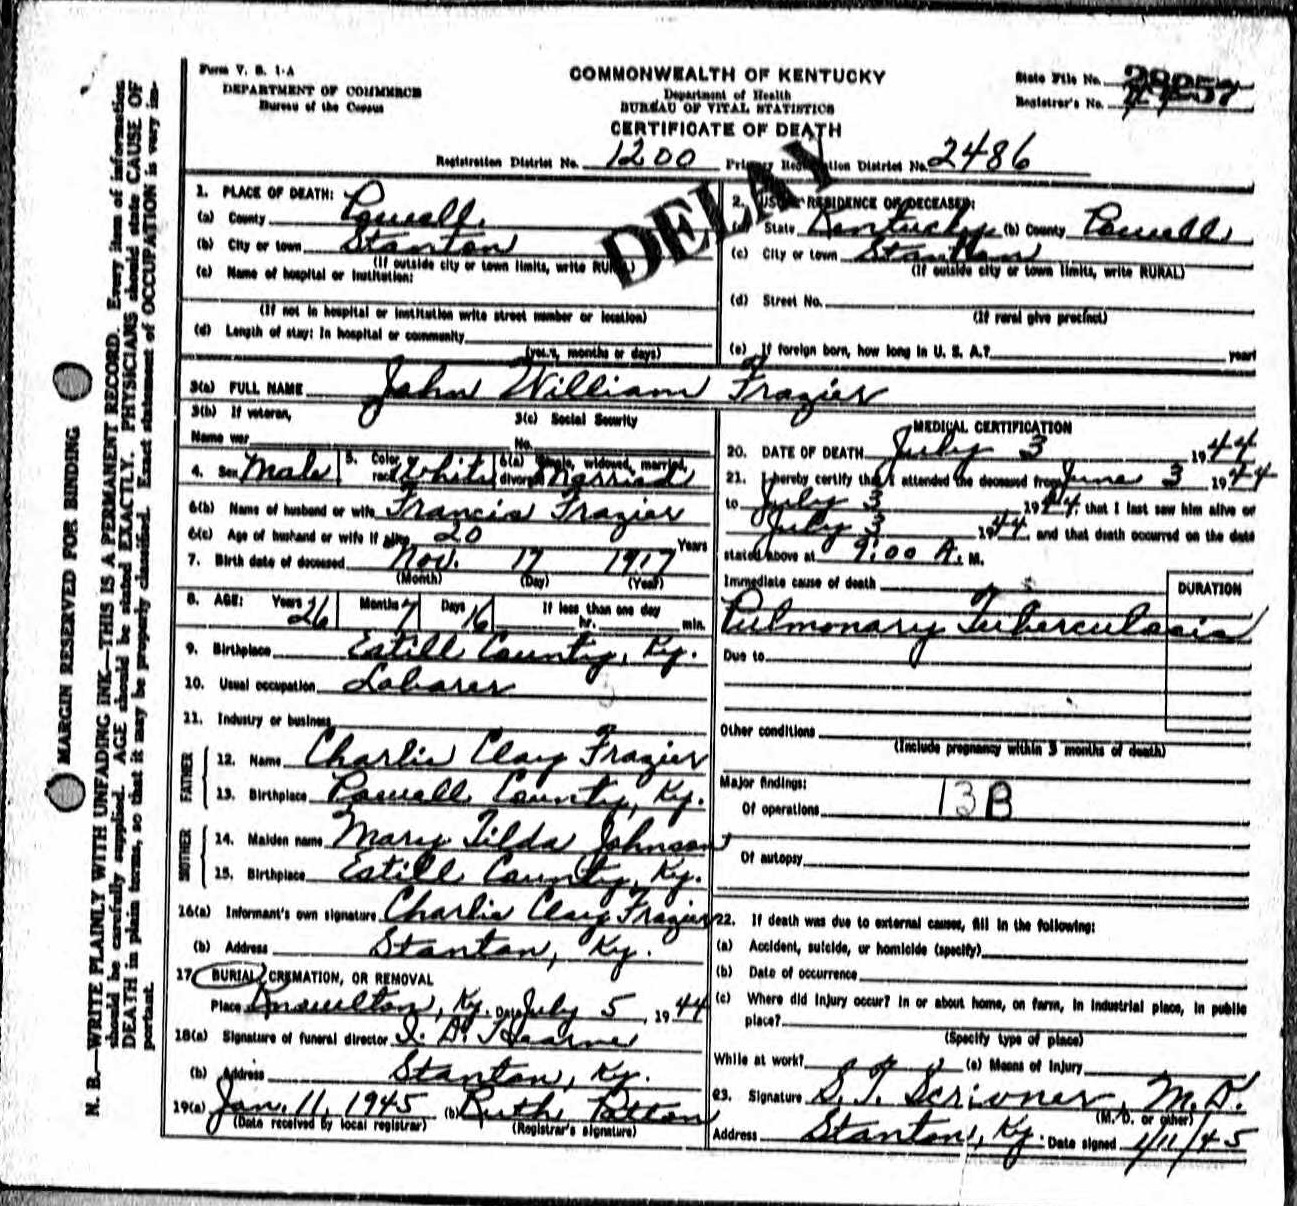 Form V. S. 1-A
DEPARTMENT OF COMMERCE
Bureau of the Census
COMMONWEALTH OF KENTUCKY
Department of Health
BUREAU OF VITAL STATISTICS
CERTIFICATE OF DEATH
State File No.
Registrar's No.
Registration District No. 1200 Primary Registration District No. 2486
DELAY
1. PLACE OF DEATH:
(a) County Powell
(b) City or town Stanton
(If outside city or town limits, write RURAL)
(c) Name of hospital or institution:
(If not in hospital or institution write street number or location)
(d) Length of stay: In hospital or community
(years, months or days)
2. USUAL RESIDENCE OF DECEASED:
(a) State Kentucky (b) County Powell
(c) City or town Stanton
(If outside city or town limits, write RURAL)
(d) Street No.
(If rural give precinct)
(e) If foreign born, how long in U. S. A.? years
3(a) FULL NAME John William Frazier
3(b) If veteran, 3(c) Social Security
Name war No.
4. Sex Male 5. Color or race White 6(a) Single, widowed, married, divorced Married
6(b) Name of husband or wife Francis Frazier
6(c) Age of husband or wife if alive 20 Years
7. Birth date of deceased Nov. 17 1917
(Month) (Day) (Year)
8. AGE: Years 26 Months 7 Days 16 If less than one day
hr. min.
9. Birthplace Estill County, Ky.
10. Usual occupation Laborer
11. Industry or business
FATHER
12. Name Charlie Clay Frazier
13. Birthplace Powell County, Ky.
MOTHER
14. Maiden name Mary Tilda Johnson
15. Birthplace Estill County, Ky.
16(a) Informant's own signature Charlie Clay Frazier
(b) Address Stanton, Ky.
17 BURIAL, CREMATION, OR REMOVAL
Place Knowlton, Ky. Date July 5, 1944
18(a) Signature of funeral director I. D. Hearne
(b) Address Stanton, Ky.
19(a) Jan. 11, 1945 (b) Ruth Patton
(Date received by local registrar) (Registrar's signature)
MEDICAL CERTIFICATION
20. DATE OF DEATH July 3 1944
21. I hereby certify that I attended the deceased from June 3 1944
to July 3 1944, that I last saw him alive on
July 3 1944, and that death occurred on the date
stated above at 9:00 A. M.
Immediate cause of death DURATION
Pulmonary Tuberculosis
Due to
Other conditions
(Include pregnancy within 3 months of death)
Major findings:
Of operations 13B
Of autopsy
22. If death was due to external causes, fill in the following:
(a) Accident, suicide, or homicide (specify)
(b) Date of occurrence
(c) Where did injury occur? In or about home, on farm, in industrial place, in public
place?
(Specify type of place)
While at work? (e) Means of Injury
23. Signature S. T. Scrivner, M. D.
(M. D. or other)
Address Stanton, Ky. Date signed 1/11/45
MARGIN RESERVED FOR BINDING
N. B.—WRITE PLAINLY WITH UNFADING INK—THIS IS A PERMANENT RECORD. Every item of information
should be carefully supplied. AGE should be stated EXACTLY. PHYSICIANS should state CAUSE OF
DEATH in plain terms, so that it may be properly classified. Exact statement of OCCUPATION is very im-
portant.